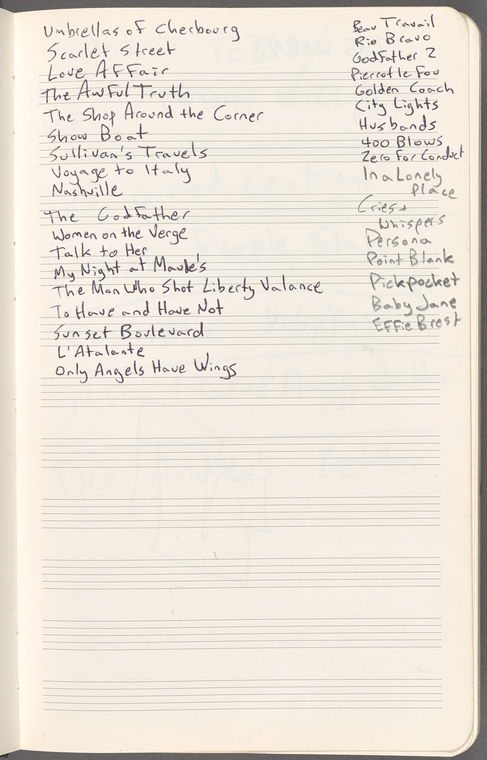 Umbrellas of Cherbourg
Scarlet Street
Love Affair
The Awful Truth
The Shop Around the Corner
Show Boat
Sullivan's Travels
Voyage to Italy
Nashville
The Godfather
Women on the Verge
Talk to Her
My Night at Maude's
The Man Who Shot Liberty Valance
To Have and Have Not
Sunset Boulevard
L'Atalante
Only Angels Have Wings
Beau Travail
Rio Bravo
Godfather 2
Pierrot le Fou
Golden Coach
City Lights
Husbands
400 Blows
Zero For Conduct
In a Lonely
Place
Cries +
Whispers
Persona
Point Blank
Pickpocket
Baby Jane
Effie Brest